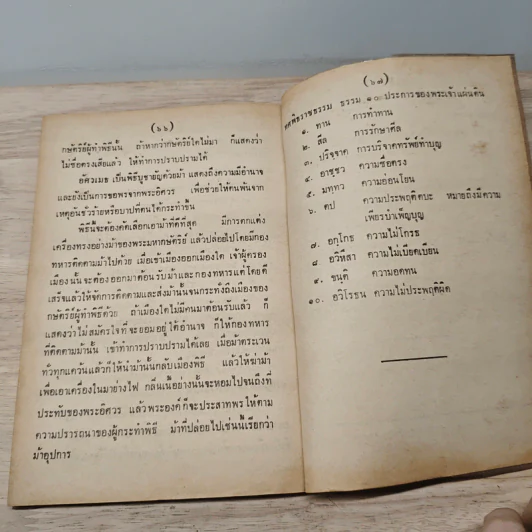 (๖๖)
กษัตริย์ผู้ทำพิธีนั้น ถ้าหากว่ากษัตริย์ใดไม่มา ก็แสดงว่า
ไม่ซื่อตรงเสียแล้ว ให้ทำการปราบปรามได้
อัศวเมธ เป็นพิธีบูชายัญด้วยม้า แสดงถึงความมีอำนาจ
และยังเป็นการขอพรจากพระอิศวร เพื่อช่วยให้คนพ้นจาก
เหตุอันชั่วร้ายหรือบาปที่คนได้กระทำขึ้น
พิธีนี้จะต้องคัดเลือกเอาม้าที่ดีที่สุด มีการตกแต่ง
เครื่องทรงอย่างม้าของพระมหากษัตริย์ แล้วปล่อยไปโดยมีกอง
ทหารติดตามม้าไปด้วย เมื่อเขาเมืองออกเมืองใด เจ้าผู้ครอง
เมืองนั้นจะต้องออกมาต้อนรับม้าและกองทหารแต่โดยดี
เสร็จแล้วให้จัดการติดตามและส่งม้านั้นจนกระทั่งถึงเมืองของ
กษัตริย์ผู้ทำพิธีด้วย ถ้าเมืองใดไม่มีคนมาต้อนรับแล้ว ก็
แสดงว่าไม่สมัครใจที่จะยอมอยู่ใต้อำนาจ ก็ให้กองทหาร
ที่ติดตามม้านั้น เข้าทำการปราบปรามได้เลย เมื่อม้าตระเวน
ทั่วทุกแคว้นแล้วก็ให้นำม้านั้นกลับเมืองพิธี แล้วให้ฆ่าม้า
เพื่อเอาเครื่องในมาย่างไฟ กลิ่นเนื้อย่างนั้นจะหอมไปจนถึงที่
ประทับของพระอิศวร แล้วพระองค์ก็จะประสาทพรให้ตาม
ความปรารถนาของผู้กระทำพิธี ม้าที่ปล่อยไปเช่นนี้เรียกว่า
ม้าอุปการ
(๖๗)
ทศพิธราชธรรม ธรรม ๑๐ ประการของพระเจ้าแผ่นดิน
๑. ทาน การทำทาน
๒. สีล การรักษาศีล
๓. ปริจฺจาค การบริจาคทรัพย์ทำบุญ
๔. อาชฺชว ความซื่อตรง
๕. มทฺทว ความอ่อนโยน
๖. ตป ความประพฤติตบะ หมายถึงมีความ
เพียรบำเพ็ญบุญ
๗. อกฺโกธ ความไม่โกรธ
๘. อวิหึสา ความไม่เบียดเบียน
๙. ขนฺติ ความอดทน
๑๐. อวิโรธน ความไม่ประพฤติผิด